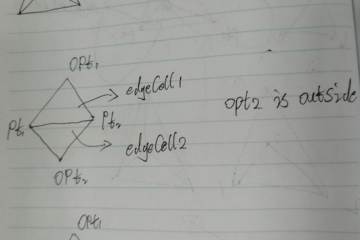 OPt1
edgeCell1
opt2 is outside
Pt1
Pt2
edgeCell2
OPt2
OPt1